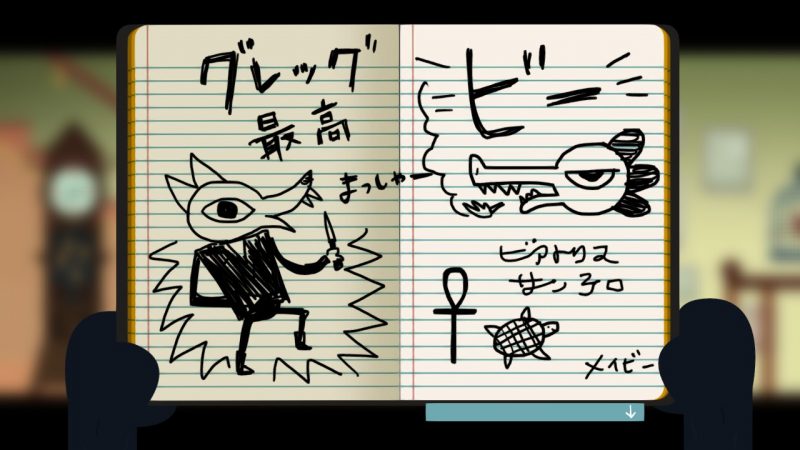 グレッグ
最高
ビー
まっしゃー
ビアトリス
サンテロ
メイビー